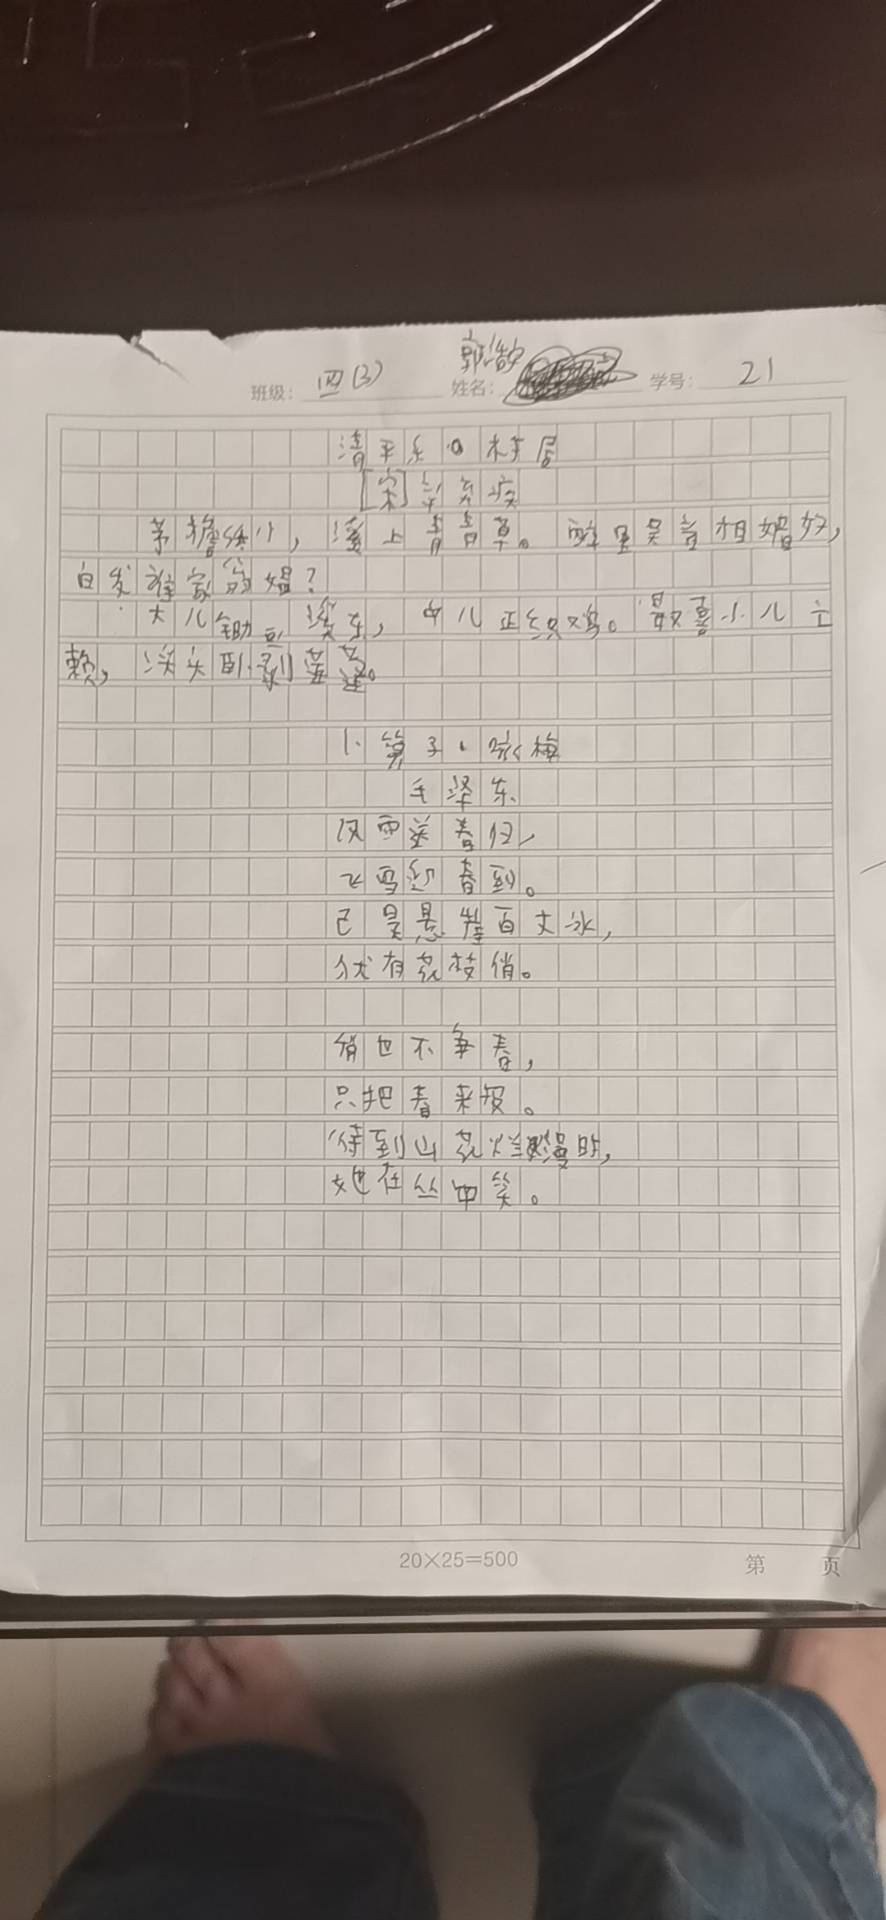 班级： 四(3) 姓名： 郭浩宇 学号： 21
清平乐·村居
[宋]辛弃疾
茅檐低小，溪上青青草。醉里吴音相媚好，
白发谁家翁媪？
大儿锄豆溪东，中儿正织鸡。最喜小儿亡
赖，溪头卧剥莲蓬。
卜算子·咏梅
毛泽东
风雨送春归，
飞雪迎春到。
已是悬崖百丈冰，
犹有花枝俏。
俏也不争春，
只把春来报。
待到山花烂漫时，
她在丛中笑。
20×25=500
第 页